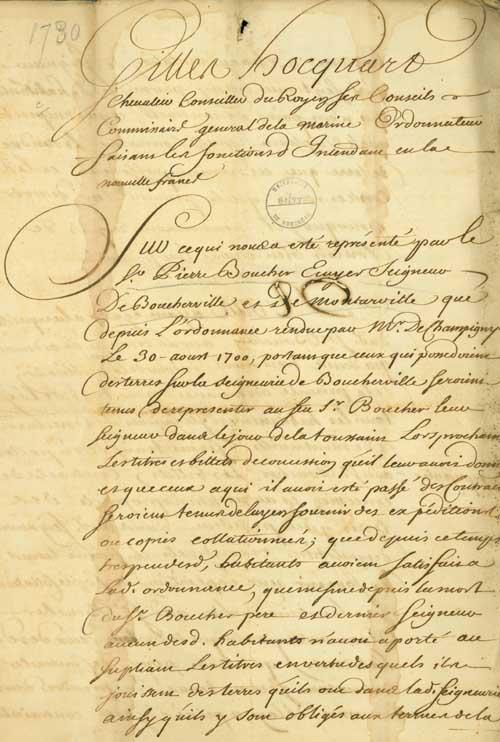 1730
Gilles hocquart
Chevalier Conseiller du Roy en ses Conseils
Commissaire general de la marine Ordonnateur
faisant les fonctions d Intendant en la
nouvelle france
Sur ce qui nous a esté représenté par le
Sr. Pierre Boucher Ecuyer Seigneur
De Boucherville et de Montarville que
depuis L'ordonnance rendue par Mr. De Champigny
Le 30 aoust 1700, portant que ceux qui possedoient
des terres sur la Seigneurie de Boucherville seroient
tenus de representer au feu Sr. Boucher leur
seigneur dans le jour de la toussaint Lors prochain
Les titres et billets de concession qu'il leur avoit donné
et que ceux a qui il avoit esté passé des Contrats
seroient tenus de luy en fournir des expéditions
ou copies collationnées; que depuis ce temps
tres peu desd. habitants auroient satisfait a
lad. ordonnance, que mesme depuis la mort
du Sr. Boucher pere et dernier Seigneur
aucun desd. habitants n'avoit aporté au
supliant Les titres en vertu des quels ils
jouissent des terres qu'ils ont dans lad. seigneurie
ainsy qu'ils y sont obligés aux termes de la